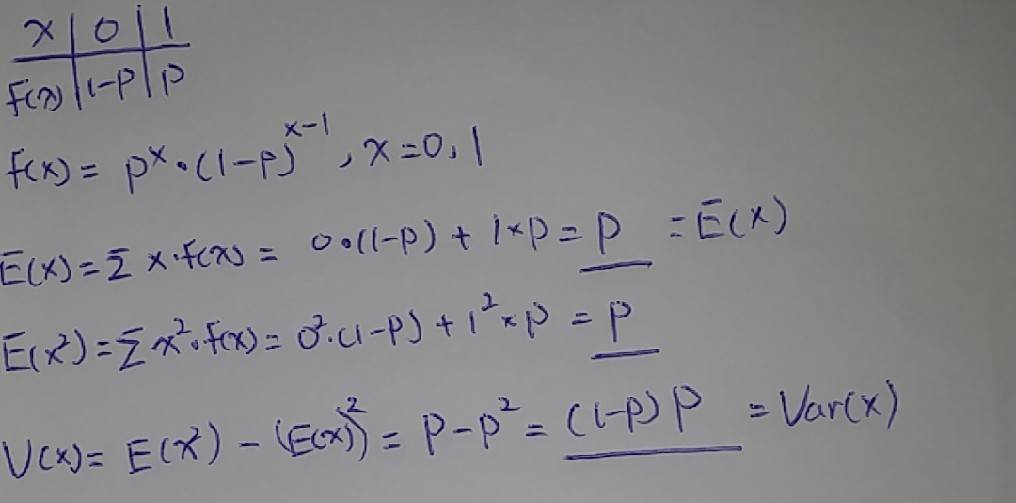 x | 0 | 1
f(x) | 1-p | p
f(x) = p^x · (1-p)^x-1 , x=0, 1
E(x) = Σ x·f(x) = 0·(1-p) + 1×p = p = E(x)
E(x²) = Σ x²·f(x) = 0²·(1-p) + 1²×p = p
V(x) = E(x²) - (E(x))² = p-p² = (1-p)p = Var(x)